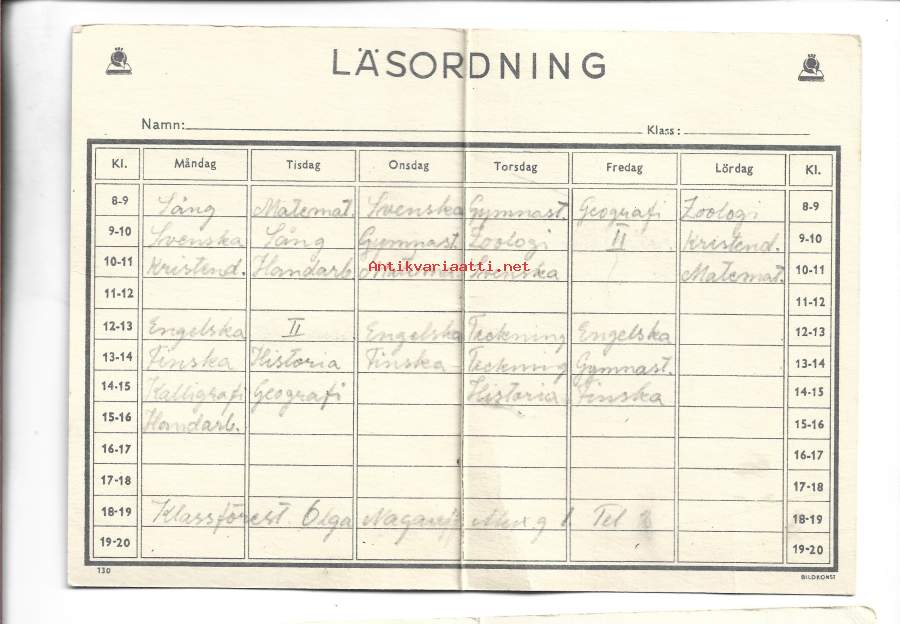 LÄSORDNING
Namn: Klass:
Kl. Måndag Tisdag Onsdag Torsdag Fredag Lördag Kl.
8-9 Sång Matemat. Svenska Gymnast. Geografi Zoologi 8-9
9-10 Svenska Sång Gymnast. Zoologi II Kristend. 9-10
10-11 Kristend. Handarb. Svenska Matemat. 10-11
Antikvariaatti.net
11-12 11-12
12-13 Engelska II Engelska Teckning Engelska 12-13
13-14 Finska Historia Finska Teckning Gymnast. 13-14
14-15 Kalligrafi Geografi Historia Finska 14-15
15-16 Handarb. 15-16
16-17 16-17
17-18 17-18
18-19 Klassförest. Olga Tel 18-19
19-20 19-20
130 BILDKONST